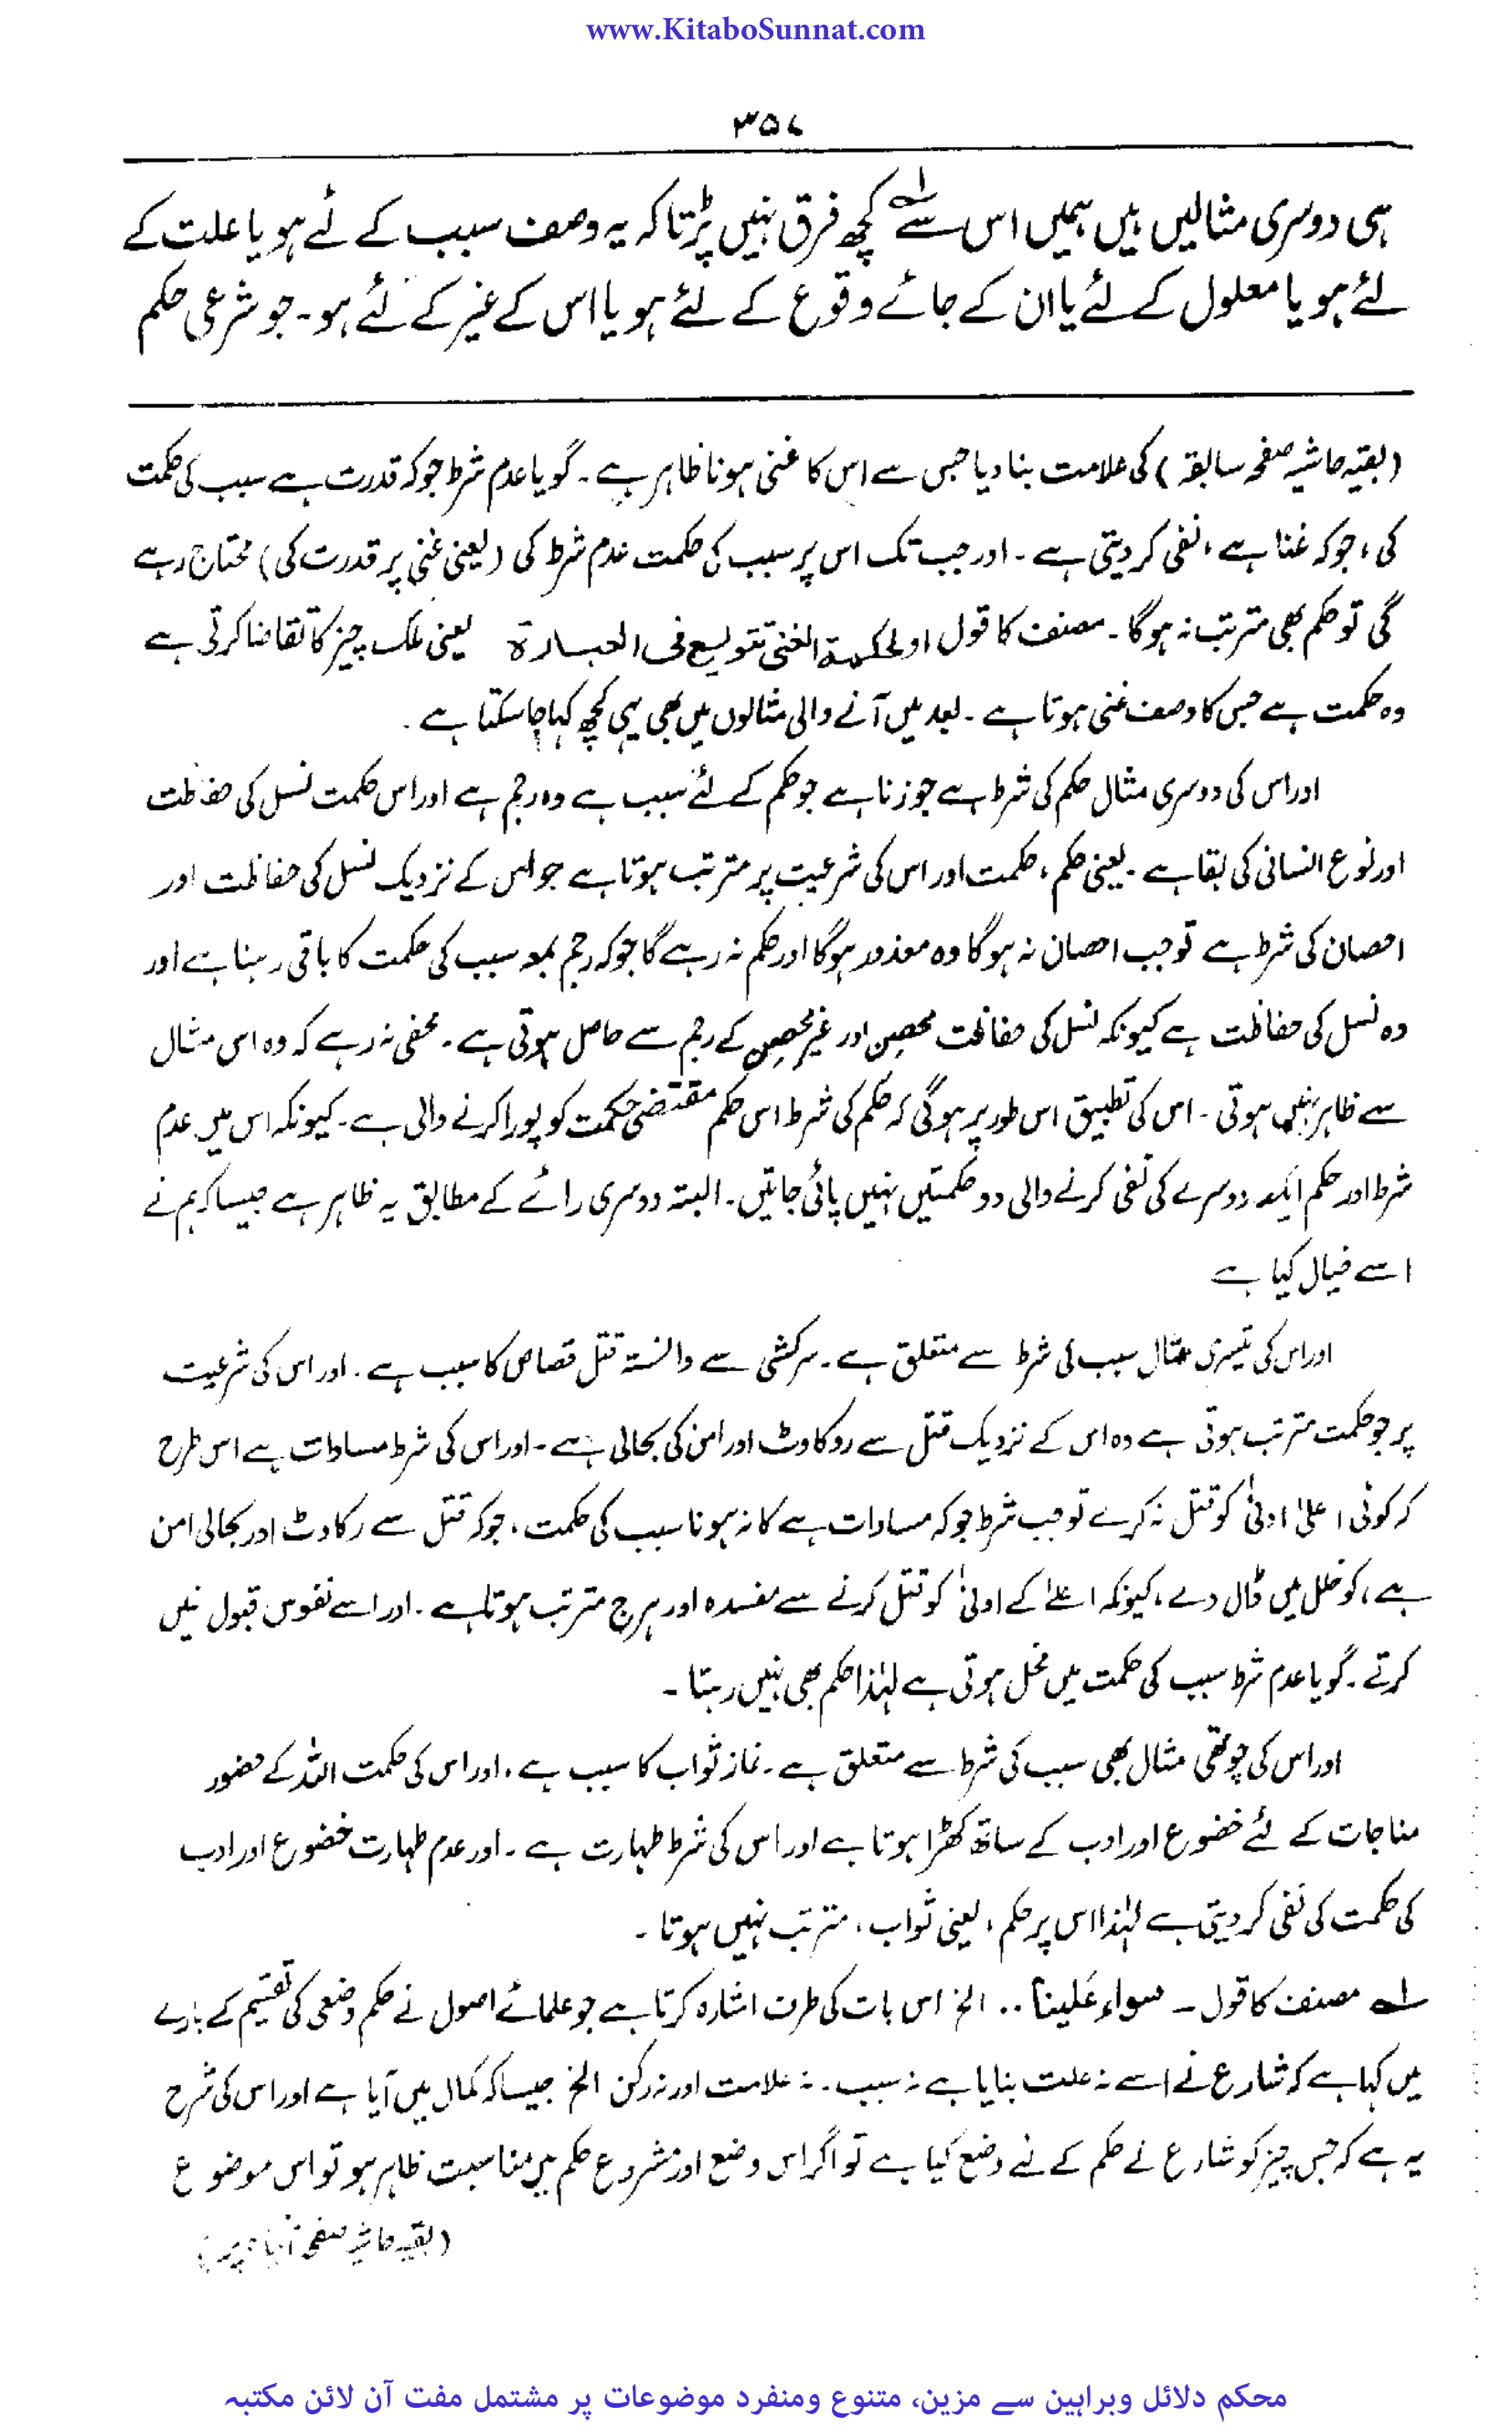 www.KitaboSunnat.com
۳۵۷
ہی دوسری مثالیں ہیں ہمیں اس سے ۱ کچھ فرق نہیں پڑتا کہ یہ وصف سبب کے لئے ہو یا علت کے
لئے ہو یا معلول کے لئے یا ان کے جائے وقوع کے لئے ہو یا اس کے غیر کے لئے ہو۔ جو شرعی حکم
(بقیہ حاشیہ صفحہ سابقہ) کی علامت بنا دیا جس سے اس کا غنی ہونا ظاہر ہے۔ گویا عدم شرط جو کہ قدرت ہے سبب کی حکمت
کی، جو کہ غنا ہے، نفی کر دیتی ہے۔ اور جب تک اس پر سبب کی حکمت عدم شرط کی (یعنی غنی پر قدرت کی) محتاج رہے
گی تو حکم بھی مترتب نہ ہوگا۔ مصنف کا قول اولحکمۃ الغنی تتوسیع فی العبارۃ یعنی ملک چیز کا تقاضا کرتی ہے
وہ حکمت ہے جس کا وصف غنی ہوتا ہے۔ بعد میں آنے والی مثالوں میں بھی یہی کچھ کہا جا سکتا ہے۔
اور اس کی دوسری مثال حکم کی شرط ہے جو زنا ہے جو حکم کے لئے سبب ہے وہ رجم ہے اور اس حکمت نسل کی حفاظت
اور نوع انسانی کی بقا ہے۔ یعنی حکم، حکمت اور اس کی شرعیت پر مترتب ہوتا ہے جو اس کے نزدیک نسل کی حفاظت اور
احصان کی شرط ہے تو جب احصان نہ ہوگا وہ معذور ہوگا اور حکم نہ رہے گا جو کہ رجم بمعہ سبب کی حکمت کا باقی رہنا ہے اور
وہ نسل کی حفاظت ہے کیونکہ نسل کی حفاظت محصن اور غیر محصن کے رجم سے حاصل ہوتی ہے۔ مخفی نہ رہے کہ وہ اس مثال
سے ظاہر نہیں ہوتی۔ اس کی تطبیق اس طور پر ہوگی کہ حکم کی شرط اس حکم مقتضی حکمت کو پورا کرنے والی ہے۔ کیونکہ اس میں عدم
شرط اور حکم ایک دوسرے کی نفی کرنے والی دو حکمتیں نہیں پائی جاتیں۔ البتہ دوسری رائے کے مطابق یہ ظاہر ہے جیسا کہ ہم نے
اسے خیال کیا ہے
اور اس کی تیسری مثال سبب کی شرط سے متعلق ہے۔ سرکشی سے دانستہ قتل قصاص کا سبب ہے۔ اور اس کی شرعیت
پر جو حکمت مترتب ہوتی ہے وہ اس کے نزدیک قتل سے روکاوٹ اور امن کی بحالی ہے۔ اور اس کی شرط مساوات ہے اس طرح
کہ کوئی اعلیٰ ادنیٰ کو قتل نہ کرے تو جب شرط جو کہ مساوات ہے کا نہ ہونا سبب کی حکمت، جو کہ قتل سے رکاوٹ اور بحالی امن
ہے، کو خلل میں ڈال دے، کیونکہ اعلےٰ کے ادنیٰ کو قتل کرنے سے مفسدہ اور ہرج مترتب ہوتا ہے۔ اور اسے نفوس قبول نہیں
کرتے۔ گویا عدم شرط سبب کی حکمت میں مخل ہوتی ہے لہٰذا حکم بھی نہیں رہتا۔
اور اس کی چوتھی مثال بھی سبب کی شرط سے متعلق ہے۔ نماز ثواب کا سبب ہے، اور اس کی حکمت اللہ کے حضور
مناجات کے لئے خضوع اور ادب کے ساتھ کھڑا ہوتا ہے اور اس کی شرط طہارت ہے۔ اور عدم طہارت خضوع اور ادب
کی حکمت کی نفی کر دیتی ہے لہٰذا اس پر حکم، یعنی ثواب، مترتب نہیں ہوتا۔
۱ مصنف کا قول ۔ سواء علینا .. الخ اس بات کی طرف اشارہ کرتا ہے جو علمائے اصول نے حکم وضعی کی تقسیم کے بارے
میں کہا ہے کہ شارع نے اسے نہ علت بنایا ہے نہ سبب۔ نہ علامت اور نہ رکن الخ جیسا کہ کمال میں آیا ہے اور اس کی شرح
یہ ہے کہ جس چیز کو شارع نے حکم کے لئے وضع کیا ہے تو اگر اس وضع اور مشروع حکم میں مناسبت ظاہر ہو تو اس موضوع
(بقیہ حاشیہ صفحہ آئندہ پر)
محکم دلائل وبراہین سے مزین، متنوع ومنفرد موضوعات پر مشتمل مفت آن لائن مکتبہ